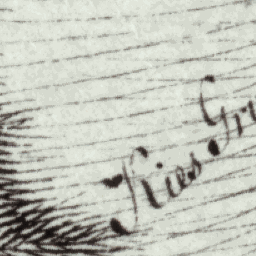 Kies Gru